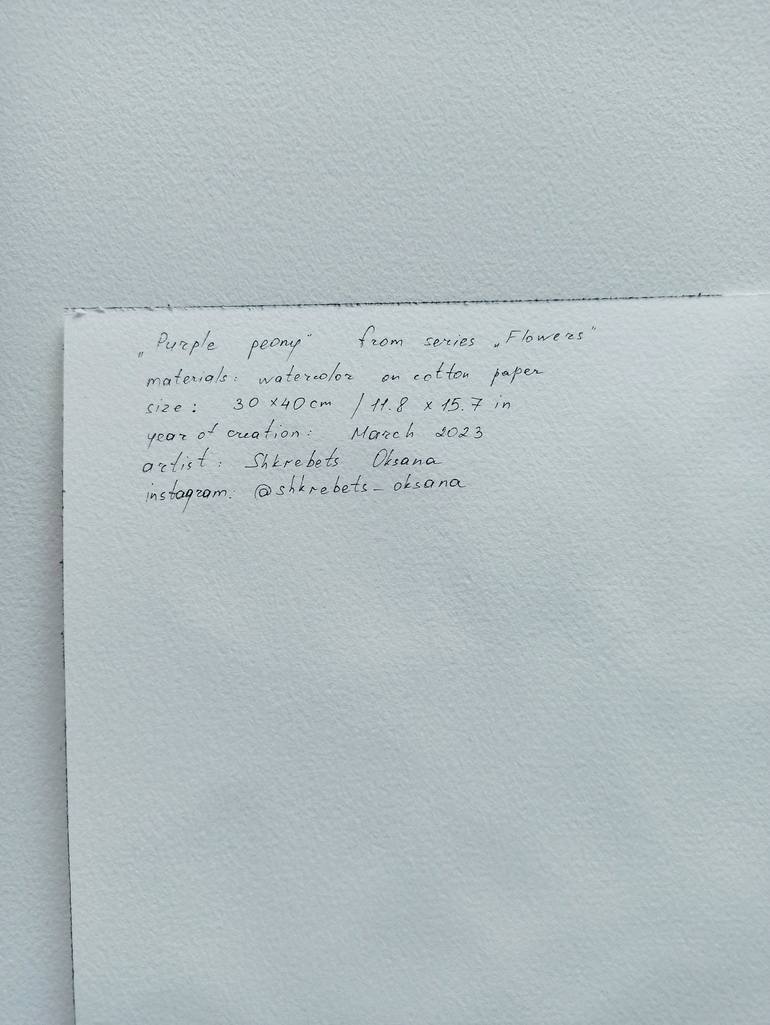 „Purple peony" from series „Flowers"
materials: watercolor on cotton paper
size: 30 x40 cm / 11.8 x 15.7 in
year of creation: March 2023
artist: Shkrebets Oksana
instagram: @shkrebets_oksana